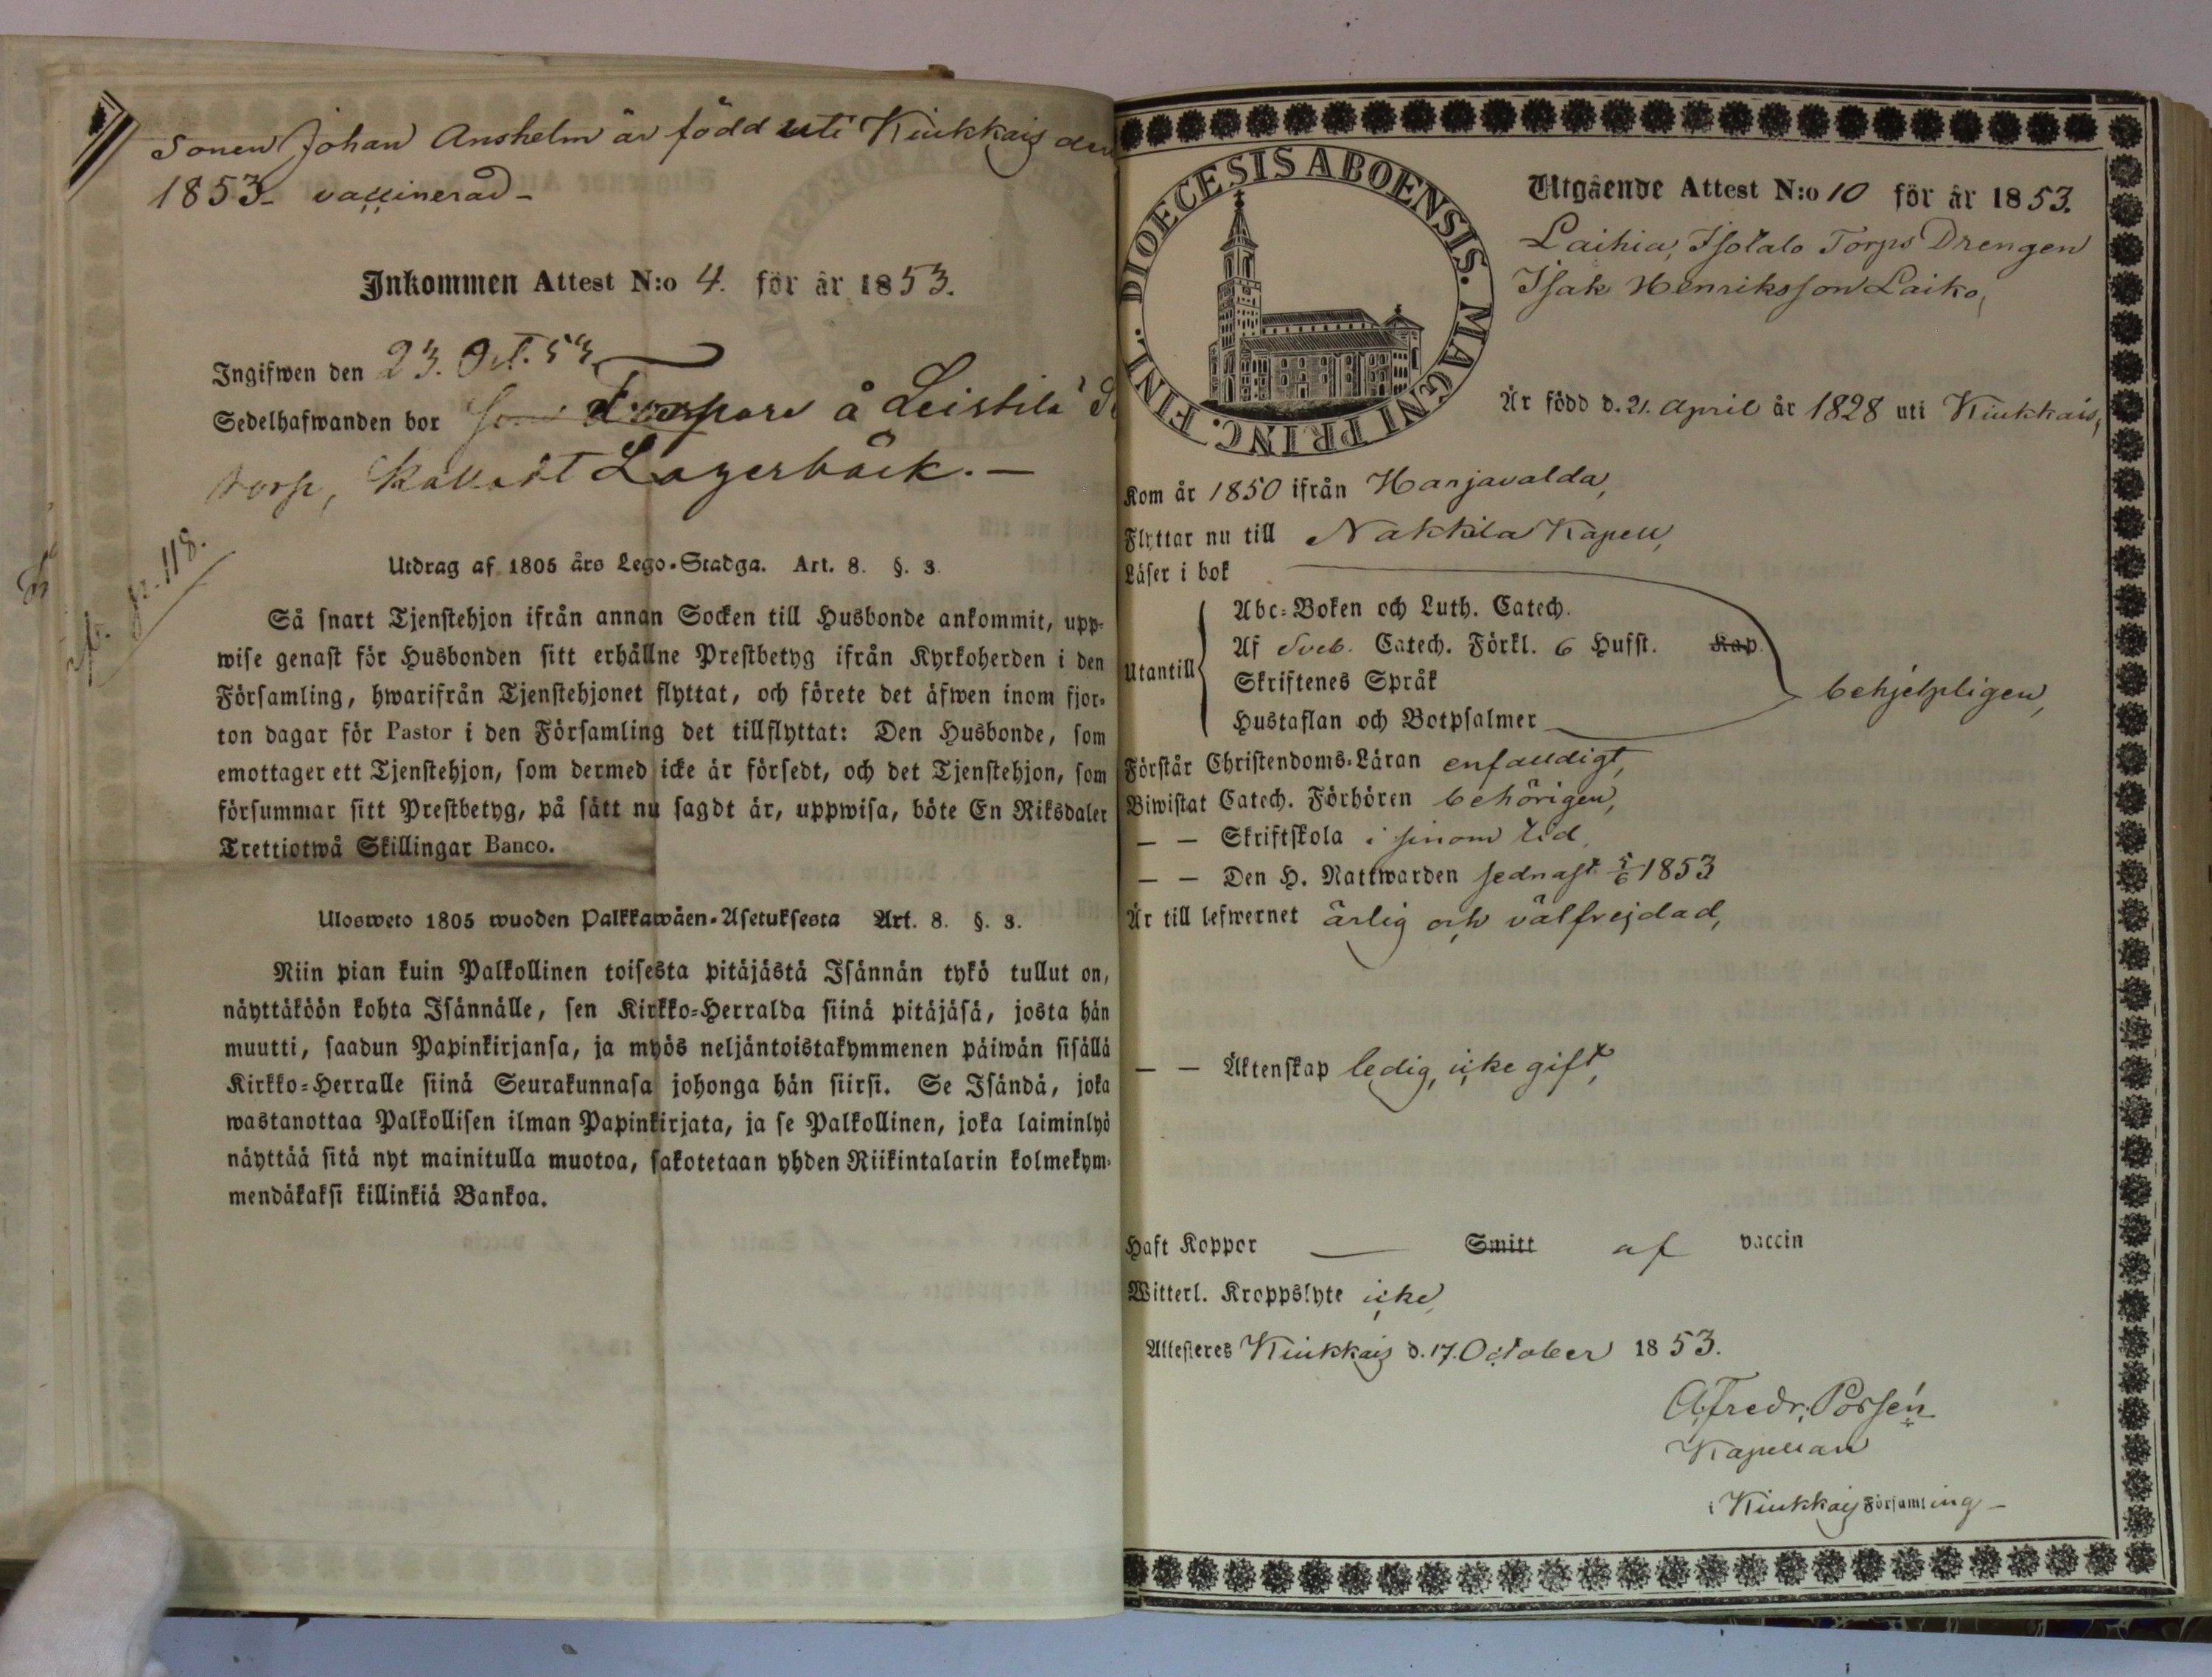 Sonen Johan Anshelm är född uti Kiukkais den
1853 - vaccinerad -
Inkommen Attest N:o 4. för år 1853.
Ingifwen den 23. Oct. 53
Sedelhafwanden bor som Torpare å Leistilä
torp, kalladt Lagerbäck. -
p. 118.
Utdrag af 1805 års Lego-Stadga. Art. 8. §. 3.
Så snart Tjenstehjon ifrån annan Socken till Husbonde ankommit, upp-
wise genast för Husbonden sitt erhållne Prestbetyg ifrån Kyrkoherden i den
Församling, hwarifrån Tjenstehjonet flyttat, och förete det äfwen inom fjor-
ton dagar för Pastor i den Församling det tillflyttat: Den Husbonde, som
emottager ett Tjenstehjon, som dermed icke är försedt, och det Tjenstehjon, som
försummar sitt Prestbetyg, på sätt nu sagdt är, uppwisa, böte En Riksdaler
Trettiotwå Skillingar Banco.
Ulosweto 1805 wuoden Palkkawäen-Asetuksesta Art. 8. §. 3.
Niin pian kuin Palkollinen toisesta pitäjästä Isännän tykö tullut on,
näyttäköön kohta Isännälle, sen Kirkko-Herralda siinä pitäjäsä, josta hän
muutti, saadun Papinkirjansa, ja myös neljäntoistakymmenen päiwän sisällä
Kirkko-Herralle siinä Seurakunnasa johonga hän siirsi. Se Isändä, joka
wastanottaa Palkollisen ilman Papinkirjata, ja se Palkollinen, joka laiminlyö
näyttää sitä nyt mainitulla muotoa, sakotetaan yhden Riikintalarin kolmekym-
mendäkaksi killinkiä Bankoa.
DIOECESIS ABOENSIS. MAGNI PRINC. FINL.
Utgående Attest N:o 10 för år 1853.
Laihia, Isotalo Torps Drengen
Isak Henriksson Laiko,
Är född d. 21. April år 1828 uti Kiukkais,
Kom år 1850 ifrån Harjavalda,
Flyttar nu till Nakkila Kapell,
Läser i bok
Abc-Boken och Luth. Catech.
Af Sveb. Catech. Förkl. 6 Hufst. Kap.
Utantill Skriftenes Språk behjelpligen,
Hustaflan och Botpsalmer
Förstår Christendoms-Läran enfaldigt,
Biwistat Catech. Förhören behörigen,
— — Skriftskola i sinom tid,
— — Den H. Nattwarden sednast 5/6 1853
Är till lefwernet ärlig och välfrejdad,
— — Äktenskap ledig, icke gift,
Haft Koppor — Smitt af vaccin
Witterl. Kroppslyte icke,
Attesteres Kiukkais d. 17. October 1853.
A. Fredr. Porsén
Kapellan
i Kiukkais Församling -